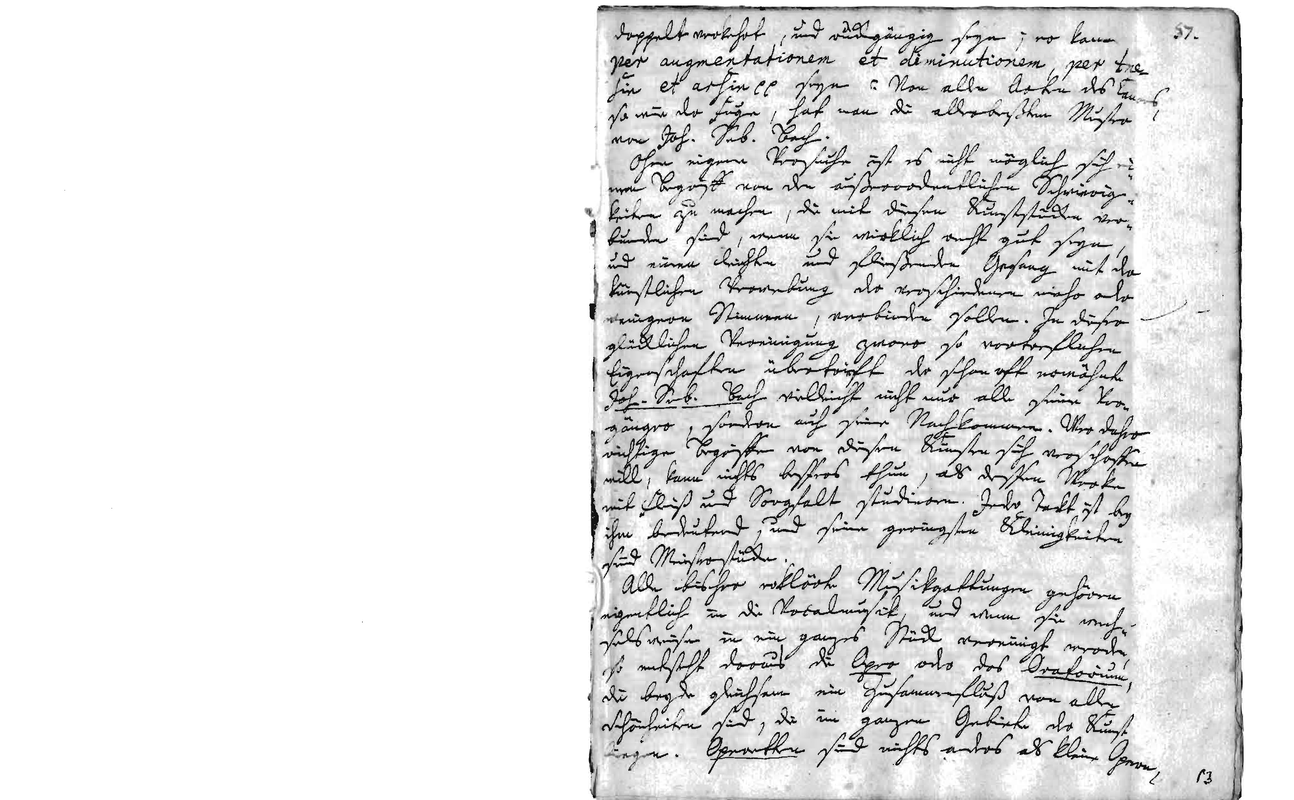 57.
doppelt verkehrt, und rückgängig seyn; er kann
per augmentationem et diminutionem, per the-
sin et arsin pp seyn: Von allen Arten des Canons,
so wie der Fuge, hat man die allerbeßten Muster
von Joh. Seb. Bach.
Ohne eigene Versuche ist es nicht möglich sich ei-
nen Begriff von den außerordentlichen Schwierig-
keiten zu machen, die mit diesen Kunststücken ver-
bunden sind, wenn sie wirklich recht gut seyn,
und einen leichten und fließenden Gesang mit der
künstlichen Verwebung der verschiedenen mehr oder
wenigern Stimmen, verbinden sollen. In dieser
glücklichen Vereinigung zwoer so vortreflichen
Eigenschaften übertrifft der schon oft erwähnte
Joh. Seb. Bach vielleicht nicht nur alle seine Vor-
gänger, sondern auch seine Nachkommen. Wer daher
richtige Begriffe von diesen Künsten sich verschaffen
will, kann nichts bessers thun, als dessen Werke
mit Fleiß und Sorgfalt studieren. Jeder Takt ist bey
ihm bedeutend, und seine geringsten Kleinigkeiten
sind Meisterstücke.
Alle bisher erklärte Musikgattungen gehören
eigentlich in die Vocalmusik, und wenn sie wech-
selsweise in ein ganzes Stück vereinigt werden,
so entsteht daraus die Oper oder das Oratorium,
die beyde gleichsam ein Zusammenfluß von allen
Schönheiten sind, die im ganzen Gebiete der Kunst
liegen. Operetten sind nichts anders als kleine Opern,
53